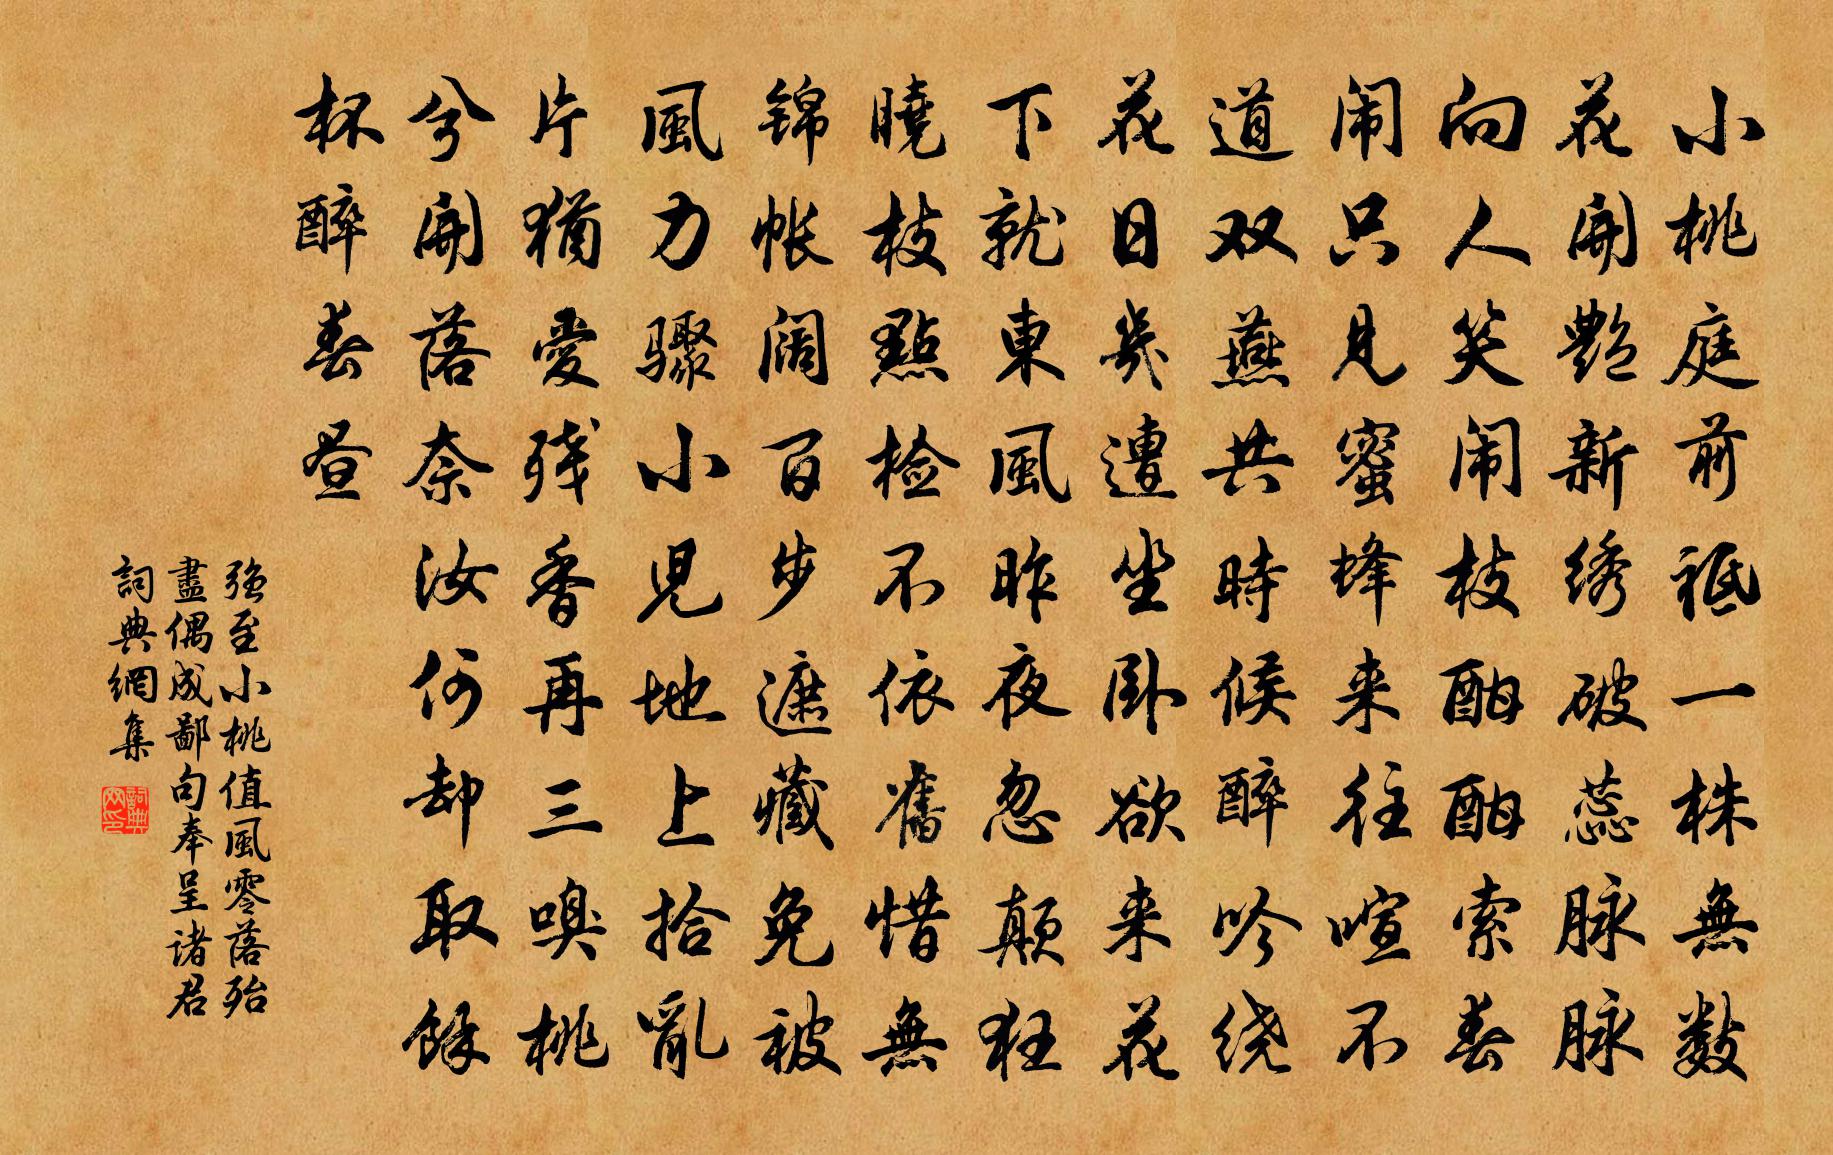 小桃庭前祗一株無數
花開艷新绣破蕊脉脉
向人笑闹枝酣酣索春
闹只見蜜蜂来往喧不
道双燕共時候醉吟绕
花日幾遭坐卧欲来花
下就東風昨夜忽颠狂
曉枝點检不依舊惜無
锦帐阔百步遮藏免被
風力骤小児地上拾亂
片猶愛残香再三嗅桃
兮開落奈汝何却取餘
杯醉春昼
强至小桃值風零落殆
盡偶成鄙句奉呈诸君
詞典網集
詞典网印